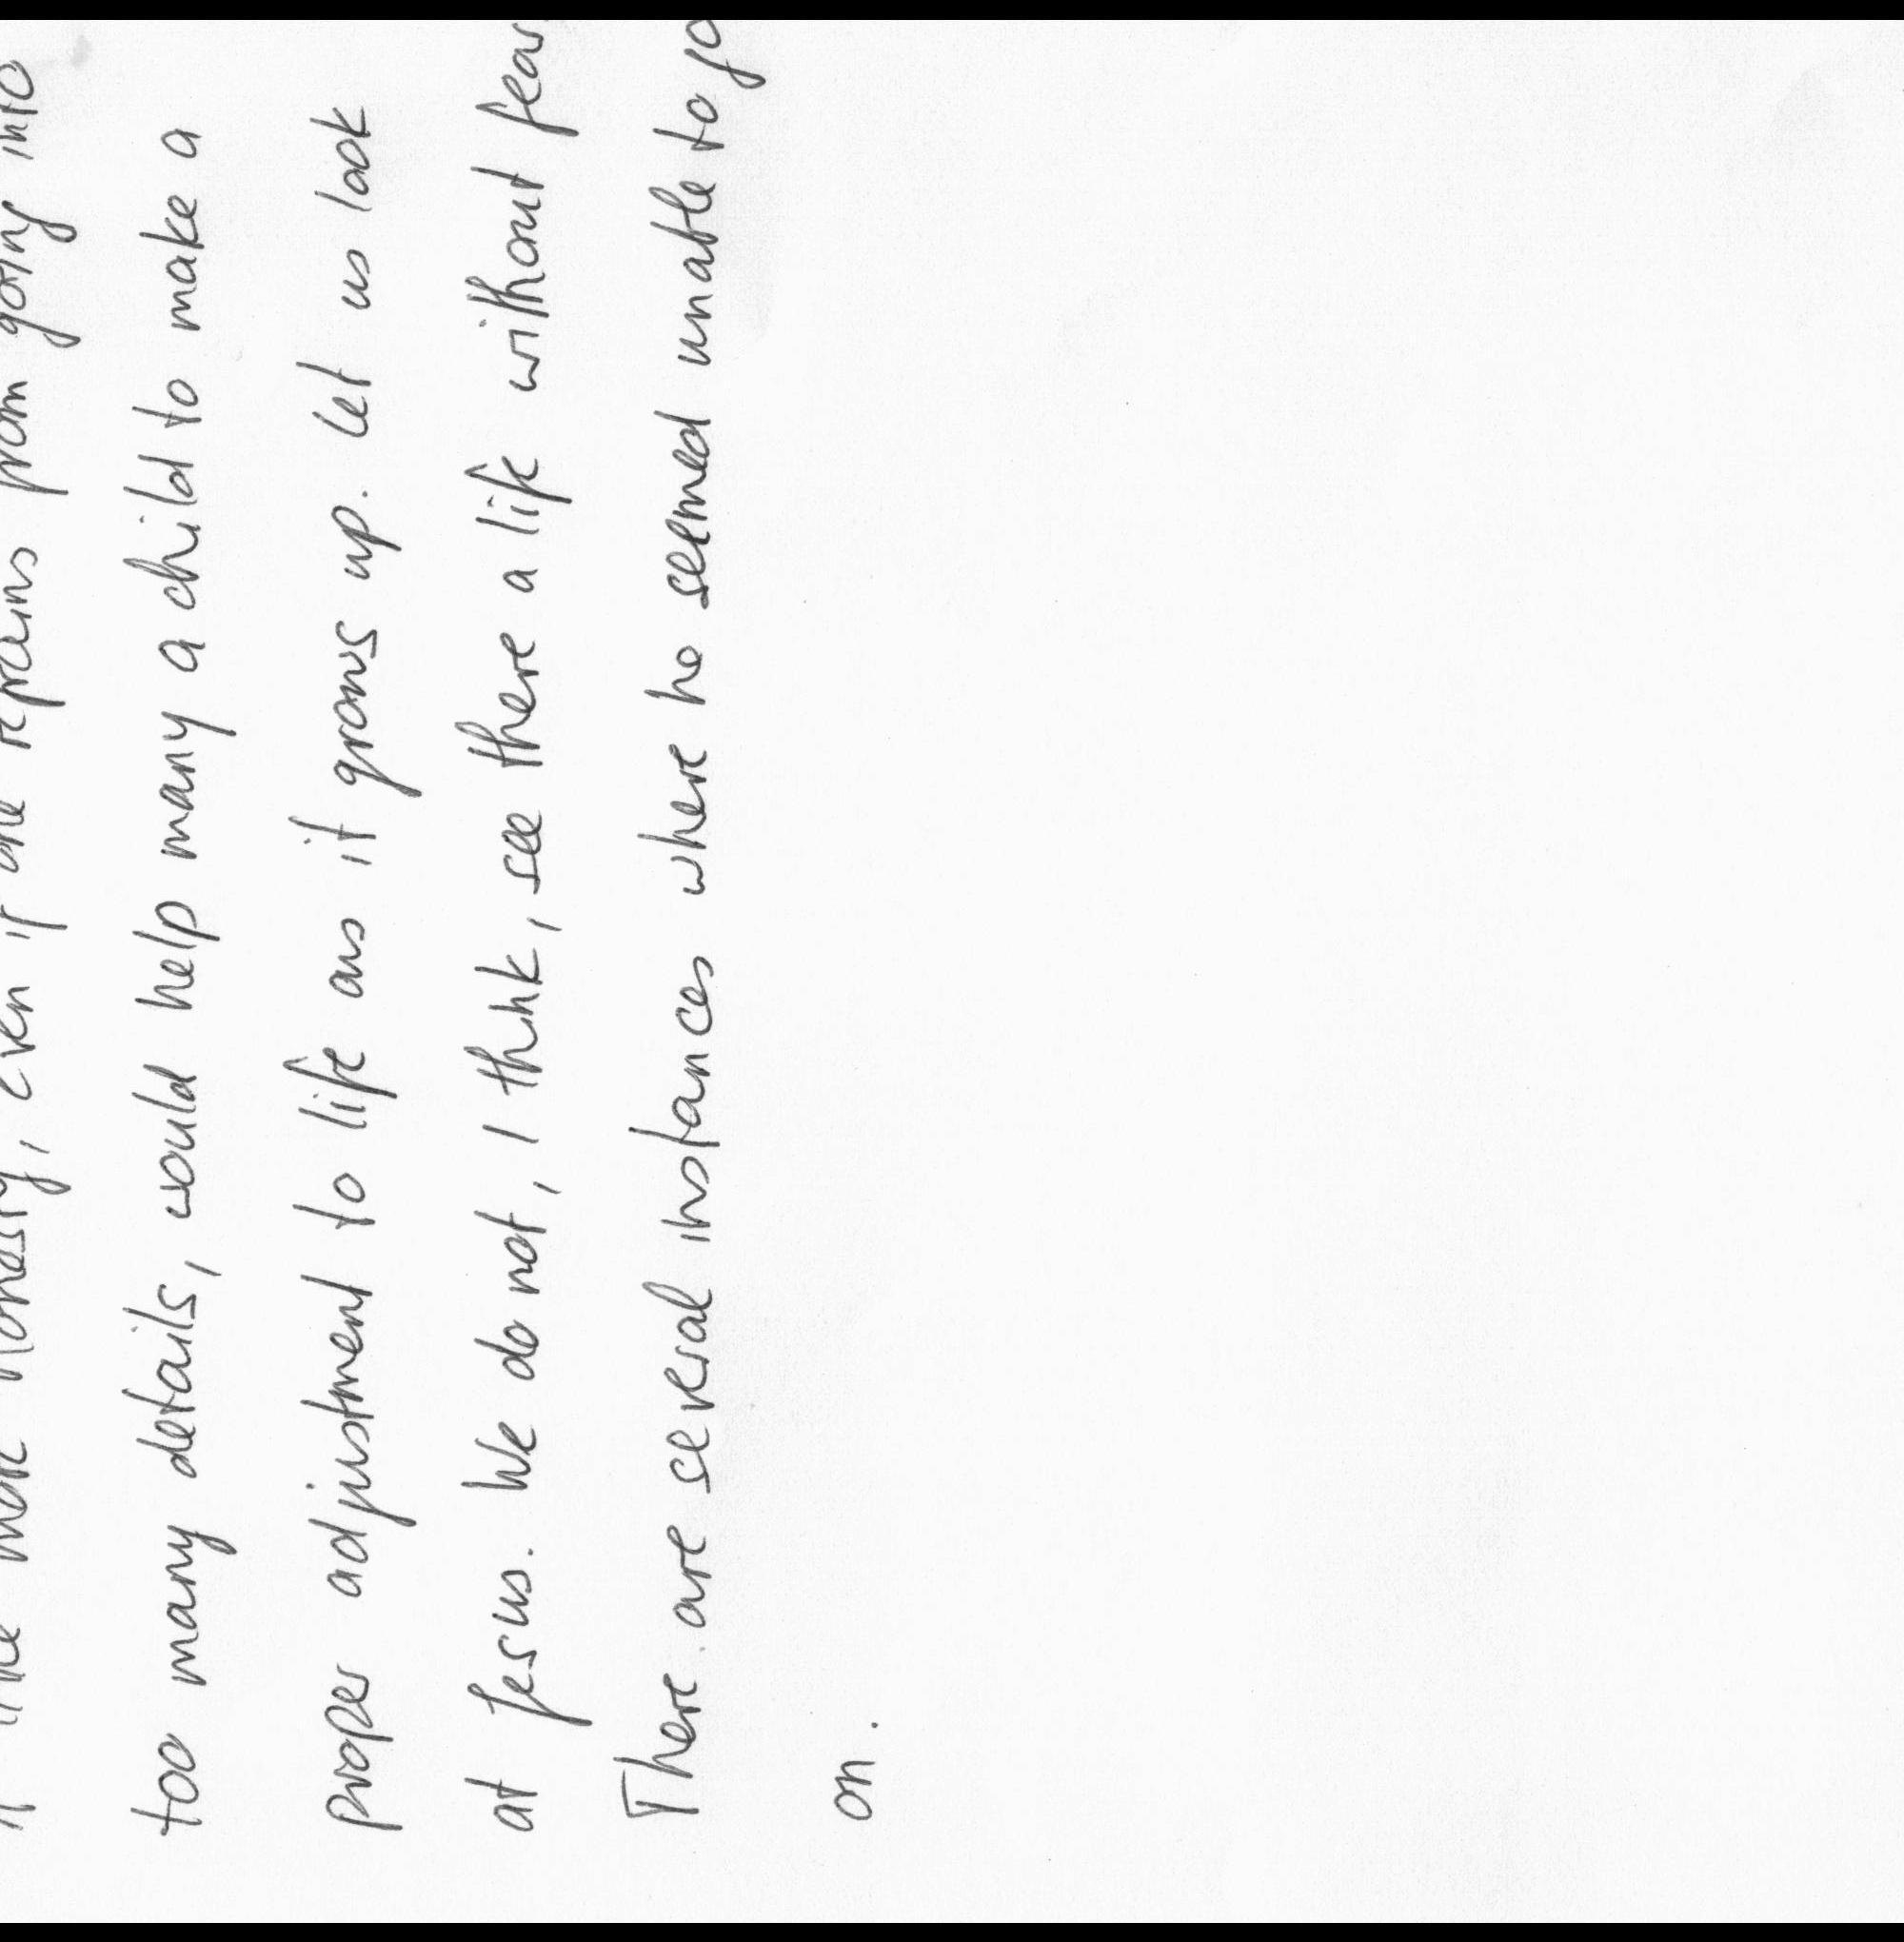 little more honesty, even if one refrains from going into
too many details, would help many a child to make a
proper adjustment to life as it grows up. Let us look
at Jesus. We do not, I think, see there a life without fear
There are several instances where he seemed unable to go
on.